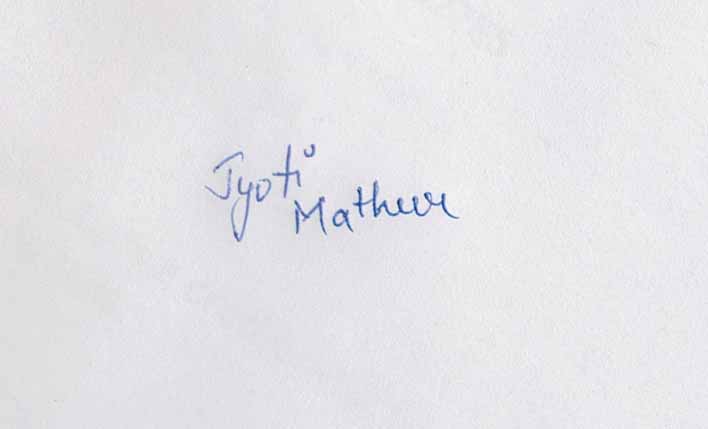 Jyoti
Mathur